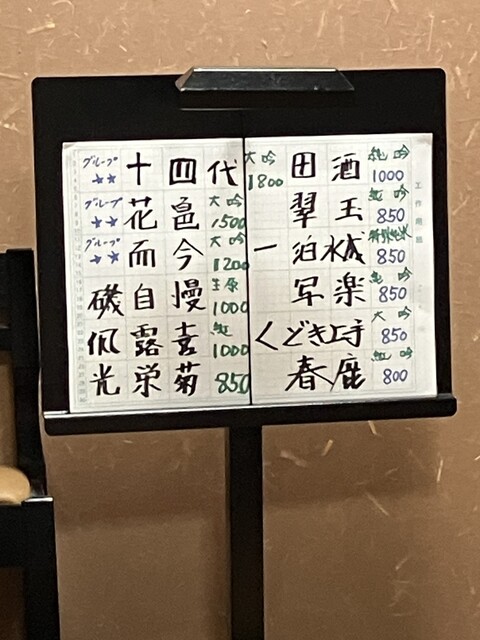 グループ ★★ 十四代 大吟 1800
グループ ★★ 花邑 大吟 1500
グループ ★★ 而今 大吟 1200
磯自慢 生原 1000
飛露喜 純 1000
光栄菊 850
田酒 純吟 1000
翠玉 純吟 850
一白水成 特別純米 850
写楽 純吟 850
くどき上手 大吟 850
春鹿 純吟 800
工作用紙